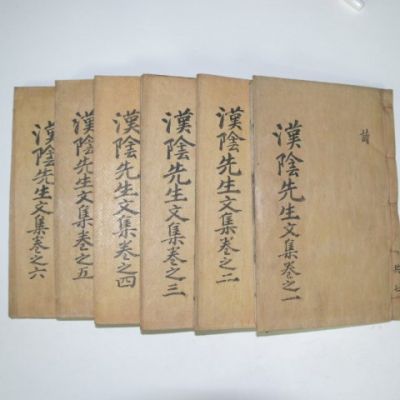 漢陰先生文集卷之一
漢陰先生文集卷之二
漢陰先生文集卷之三
漢陰先生文集卷之四
漢陰先生文集卷之五
漢陰先生文集卷之六